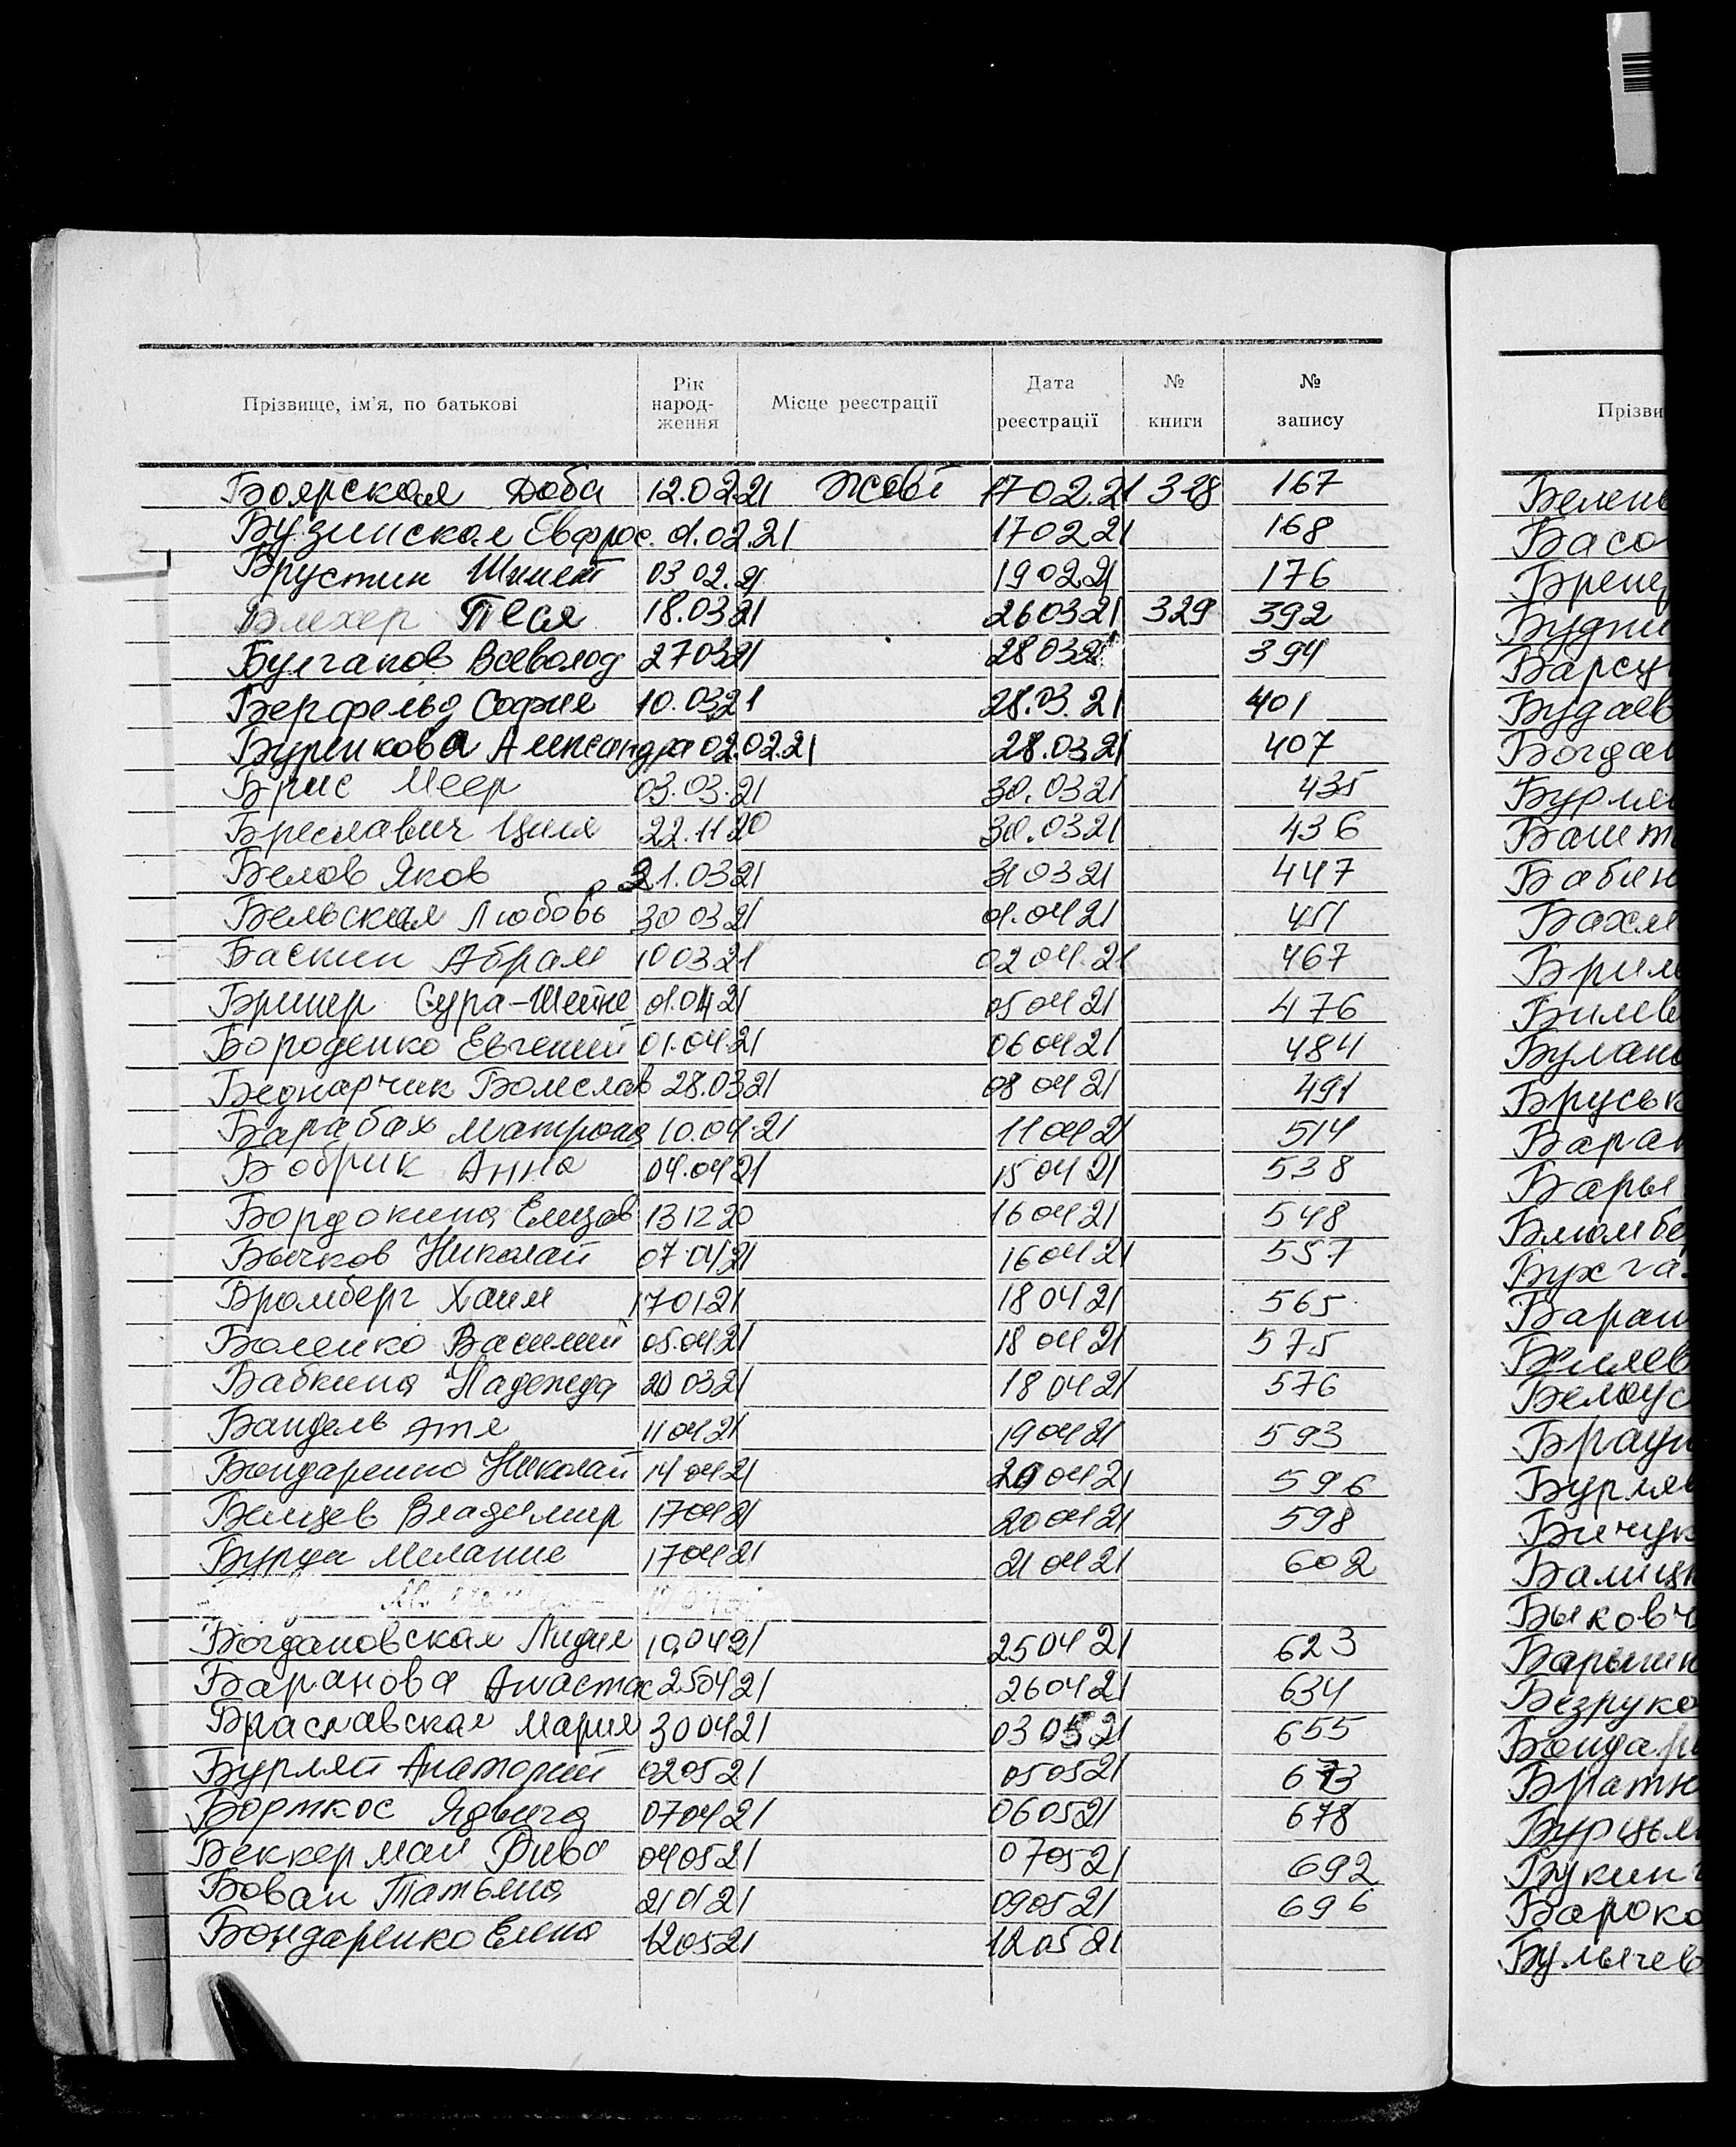 Прізвище, ім'я, по батькові Рік народ-ження Місце реєстрації Дата реєстрації № книги № запису
Боярская Доба 12.02.21 17.02.21 328 167
Бузинская Евфрос. 01.02.21 17 02 21 168
Брустин 03 02.21 19 02 21 176
Блехер Песя 18.03 21 26 03 21 329 392
Булгаков Всеволод 27 03 21 28 03 21 394
Берфельд София 10.03 21 28.03.21 401
Буренкова Александра 02.02.21 28.03.21 407
Брис Меер 03.03.21 30.03 21 435
Бреславич Циля 22.11 20 30.03 21 436
Белов Яков 21.03 21 31 03 21 447
Бельская Любовь 30 03 21 01.04 21 451
Баскин Абрам 10 03 21 02 04.21 467
Бринер Сура-Шейне 01.04 21 05 04 21 476
Бороденко Евгений 01.04.21 06 04 21 484
Беднарчик Болеслав 28.03 21 08 04 21 491
Барабах Матрона 10.04.21 11 04 21 514
Бобрик Анна 04.04 21 15 04 21 538
Бордокина Елизав 13 12 20 16 04 21 548
Бычков Николай 07 04 21 16 04 21 557
Бромберг Хаим 17 01 21 18 04 21 565
Боленко Василий 05.04 21 18 04 21 575
Бабкина Надежда 20 03 21 18 04 21 576
Бандель Этя 11 04 21 19 04 21 593
Бондаренко Николай 14 04 21 20 04 21 596
Владимир 17 04 21 20 04 21 598
Бурда Мелания 17 04 21 21 04 21 602
Богдановская Лидия 10.04 21 25 04 21 623
Баранова Анастас 25 04 21 26 04 21 634
Браславская Мария 30 04 21 03 05 21 655
Бурлей Анатолий 02 05 21 05 05 21 673
Борткос Ядвига 07 04 21 06 05 21 678
Беккерман Рива 04 05 21 07 05 21 692
Бован Татьяна 21 01 21 09 05 21 696
Бондаренко Елена 12 05 21 12 05 21
Прізви
Белень
Басо
Бренер
Будни
Барсу
Будаев
Богдан
Бабин
Бахм
Брил
Билев
Булан
Бруськ
Баран
Бары
Блюмбе
Бухга
Баран
Беляев
Белоус
Браун
Бичук
Балицк
Быковч
Барыши
Безруко
Бондар
Братк
Букин
Бароко
Булычев